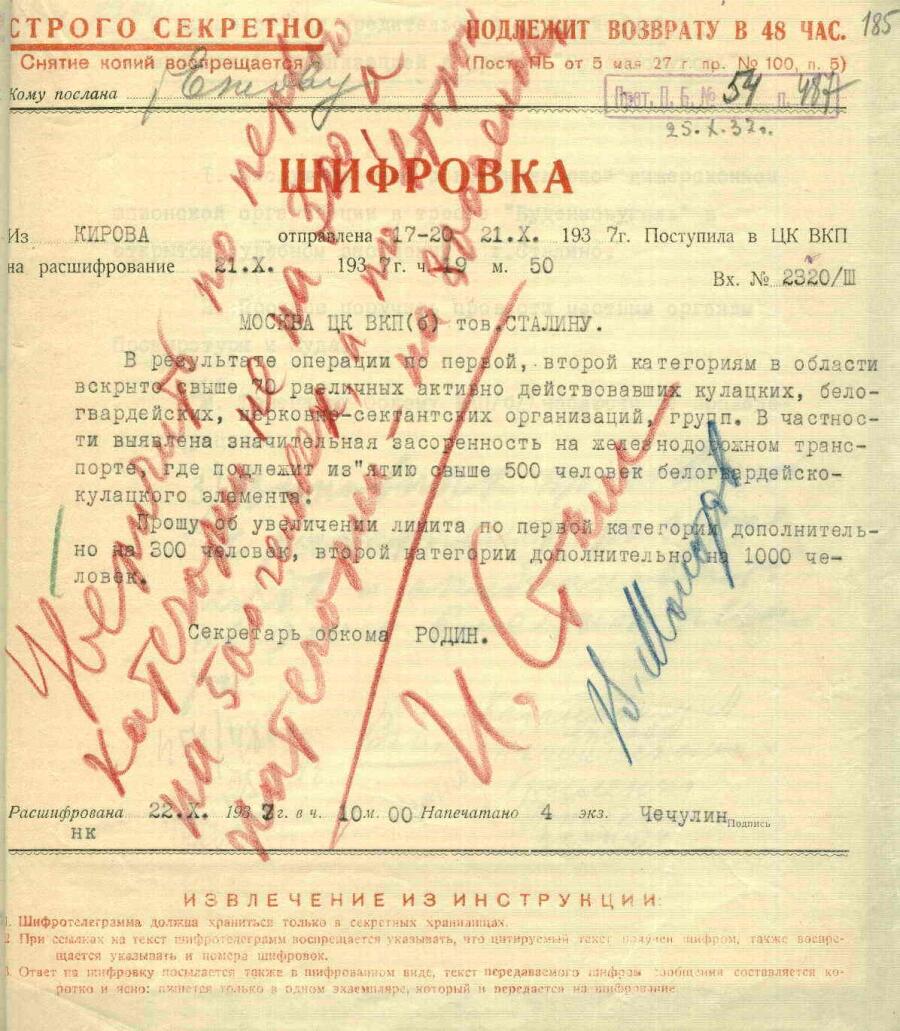 СТРОГО СЕКРЕТНО
Снятие копий воспрещается
ПОДЛЕЖИТ ВОЗВРАТУ В 48 ЧАС.
(Пост. ПБ от 5 мая 27 г. пр. № 100, п. 5)
185
Кому послана т. Ежову
Прот. П. Б. № 54 п. 487
25.X.37г.
ШИФРОВКА
Из КИРОВА отправлена 17-20 21.X. 1937г. Поступила в ЦК ВКП
на расшифрование 21.X. 1937г. ч. 19 м. 50
Вх. № 2320/Ш
МОСКВА ЦК ВКП(б) тов.СТАЛИНУ.
В результате операции по первой, второй категориям в области
вскрыто свыше 70 различных активно действовавших кулацких, бело-
гвардейских, церковно-сектантских организаций, групп. В частнос-
ти выявлена значительная засоренность на железнодорожном транс-
порте, где подлежит из"ятию свыше 500 человек белогвардейско-
кулацкого элемента.
Прошу об увеличении лимита по первой категории дополнитель-
но на 300 человек, второй категории дополнительно на 1000 че-
ловек.
Секретарь обкома РОДИН.
Увеличить по первой
категории не на 300, а
на 500 человек, а по второй
категории – на 800 человек
И. Сталин
В. Молотов
Расшифрована 22.X. 1937г. в ч. 10 м. 00 Напечатано 4 экз. Чечулин
Подпись
НК
ИЗВЛЕЧЕНИЕ ИЗ ИНСТРУКЦИИ:
1. Шифротелеграмма должна храниться только в секретных хранилищах.
2. При ссылках на текст шифротелеграмм воспрещается указывать, что цитируемый текст получен шифром, также воспре-
щается указывать и номера шифровок.
3. Ответ на шифровку посылается также в шифрованном виде, текст передаваемого шифром сообщения составляется ко-
ротко и ясно: пишется только в одном экземпляре, который и передается на шифрование